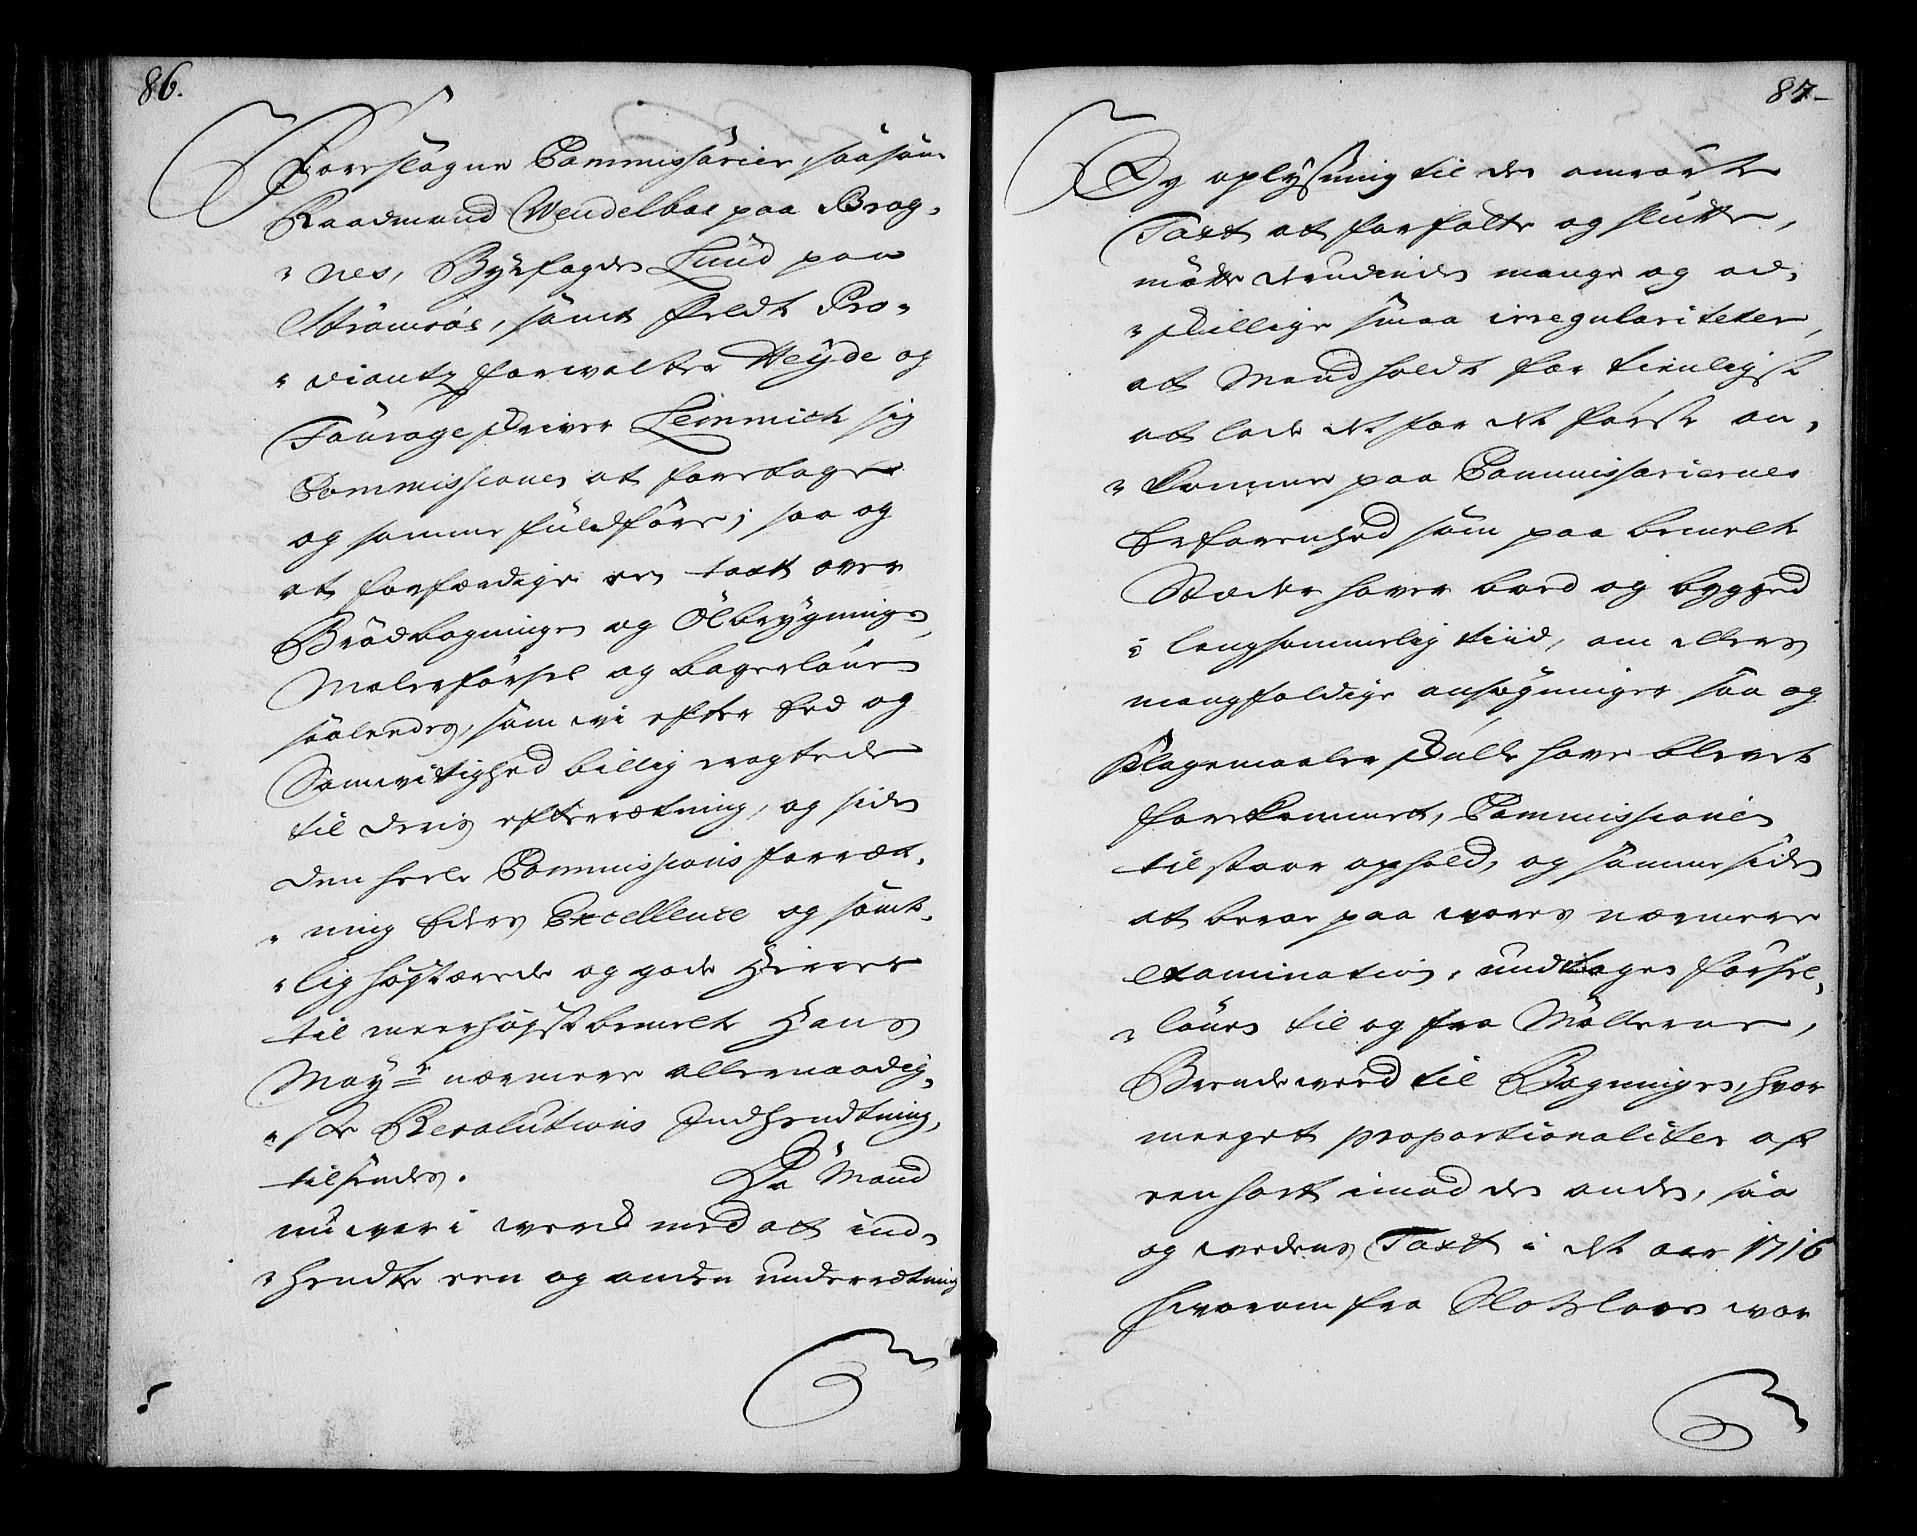 86.
Foreslagne Commissarier, saasom
Raadmand Wendelboe paa Brag-
nes, Byefogden Lund paa
Strömsöe, samt Feldt Pro-
viantz forvalter Heyde og
Fourage skriver Lemmich sig
Commissionen at foretage
og samme fuldföre; saa og
at forfærdige en taxt over
Brödbagningen og Ölbrygningen,
Malerförsel og bagerlönen
saaledes, som vi efter Eed og
Samvittighed billig eragtede
til deris efterretning, og siden
den heele Commissions forret-
ning Eders Excellence og samt-
lig högstærede og gode Herrer
til meerhögstbemelte Hans
Mayt nærmere allernaadig-
ste Resolutions Indhendtning,
tilsendes. Da Mand
nu var i verck med at ind-
hendte een og anden underretning
87-
Og oplysning til den omrörte
Taxt at forfatte og slutte,
mötte derudinden mange og ad-
skillige smaa irregulariteter,
at Mand holdt for tienligst
at lade det for det förste an-
komme paa Commissariernes
Erfarenhed som paa bemelte
Stæder haver boed og bygged
i langsommelig tiid, om ellers
mangfoldige ansögninger saa og
Klagemaaler skulle have blevet
forekommet, Commissionen
tilstaar ophold, og samme siden
at beroe paa vores nærmere
examination, undtagen försel-
löns til og fra Möllerne,
Brendeveed til Bagningen, hvor
meeget proportionaliter af
een sort imod den anden, saa
og vedens Taxt i det aar 1716
hvorom fra Slotzloven var